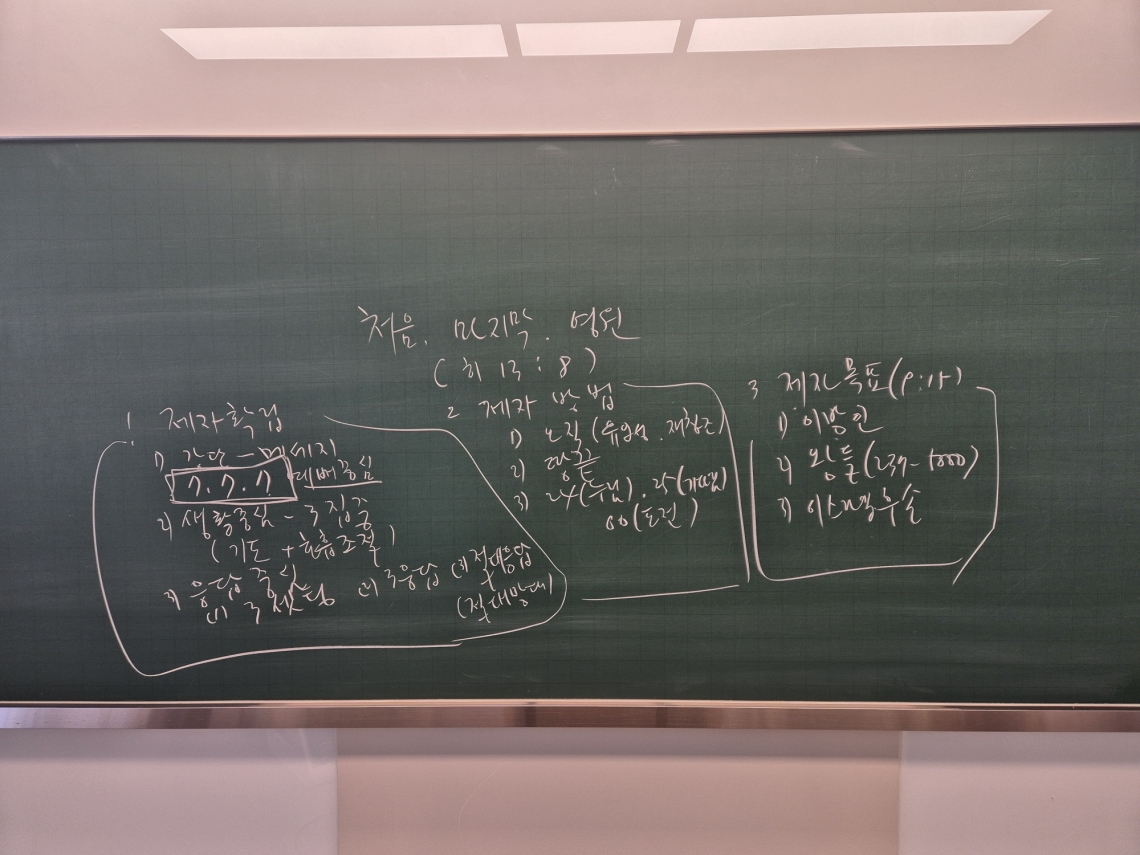 처음. 마지막. 영원
(히 13 : 8)
1. 제자확립
1) 강단 - 메세지
7. 7. 7 예배중심
2) 생활중심 - 3집중
(기도 + 호흡조절)
3) 응답 중심
(1) 3셋팅 (2) 3응답 (3) 절대응답
(절대망대)
2 제자 방법
1) 노직 (유일성. 재창조)
2)
3) 24 (누림). 25 (기다림)
00 (도전)
3 제자 목표 (9:15)
1) 이방인
2) 임금들 (237-5000)
3) 이스라엘 후손